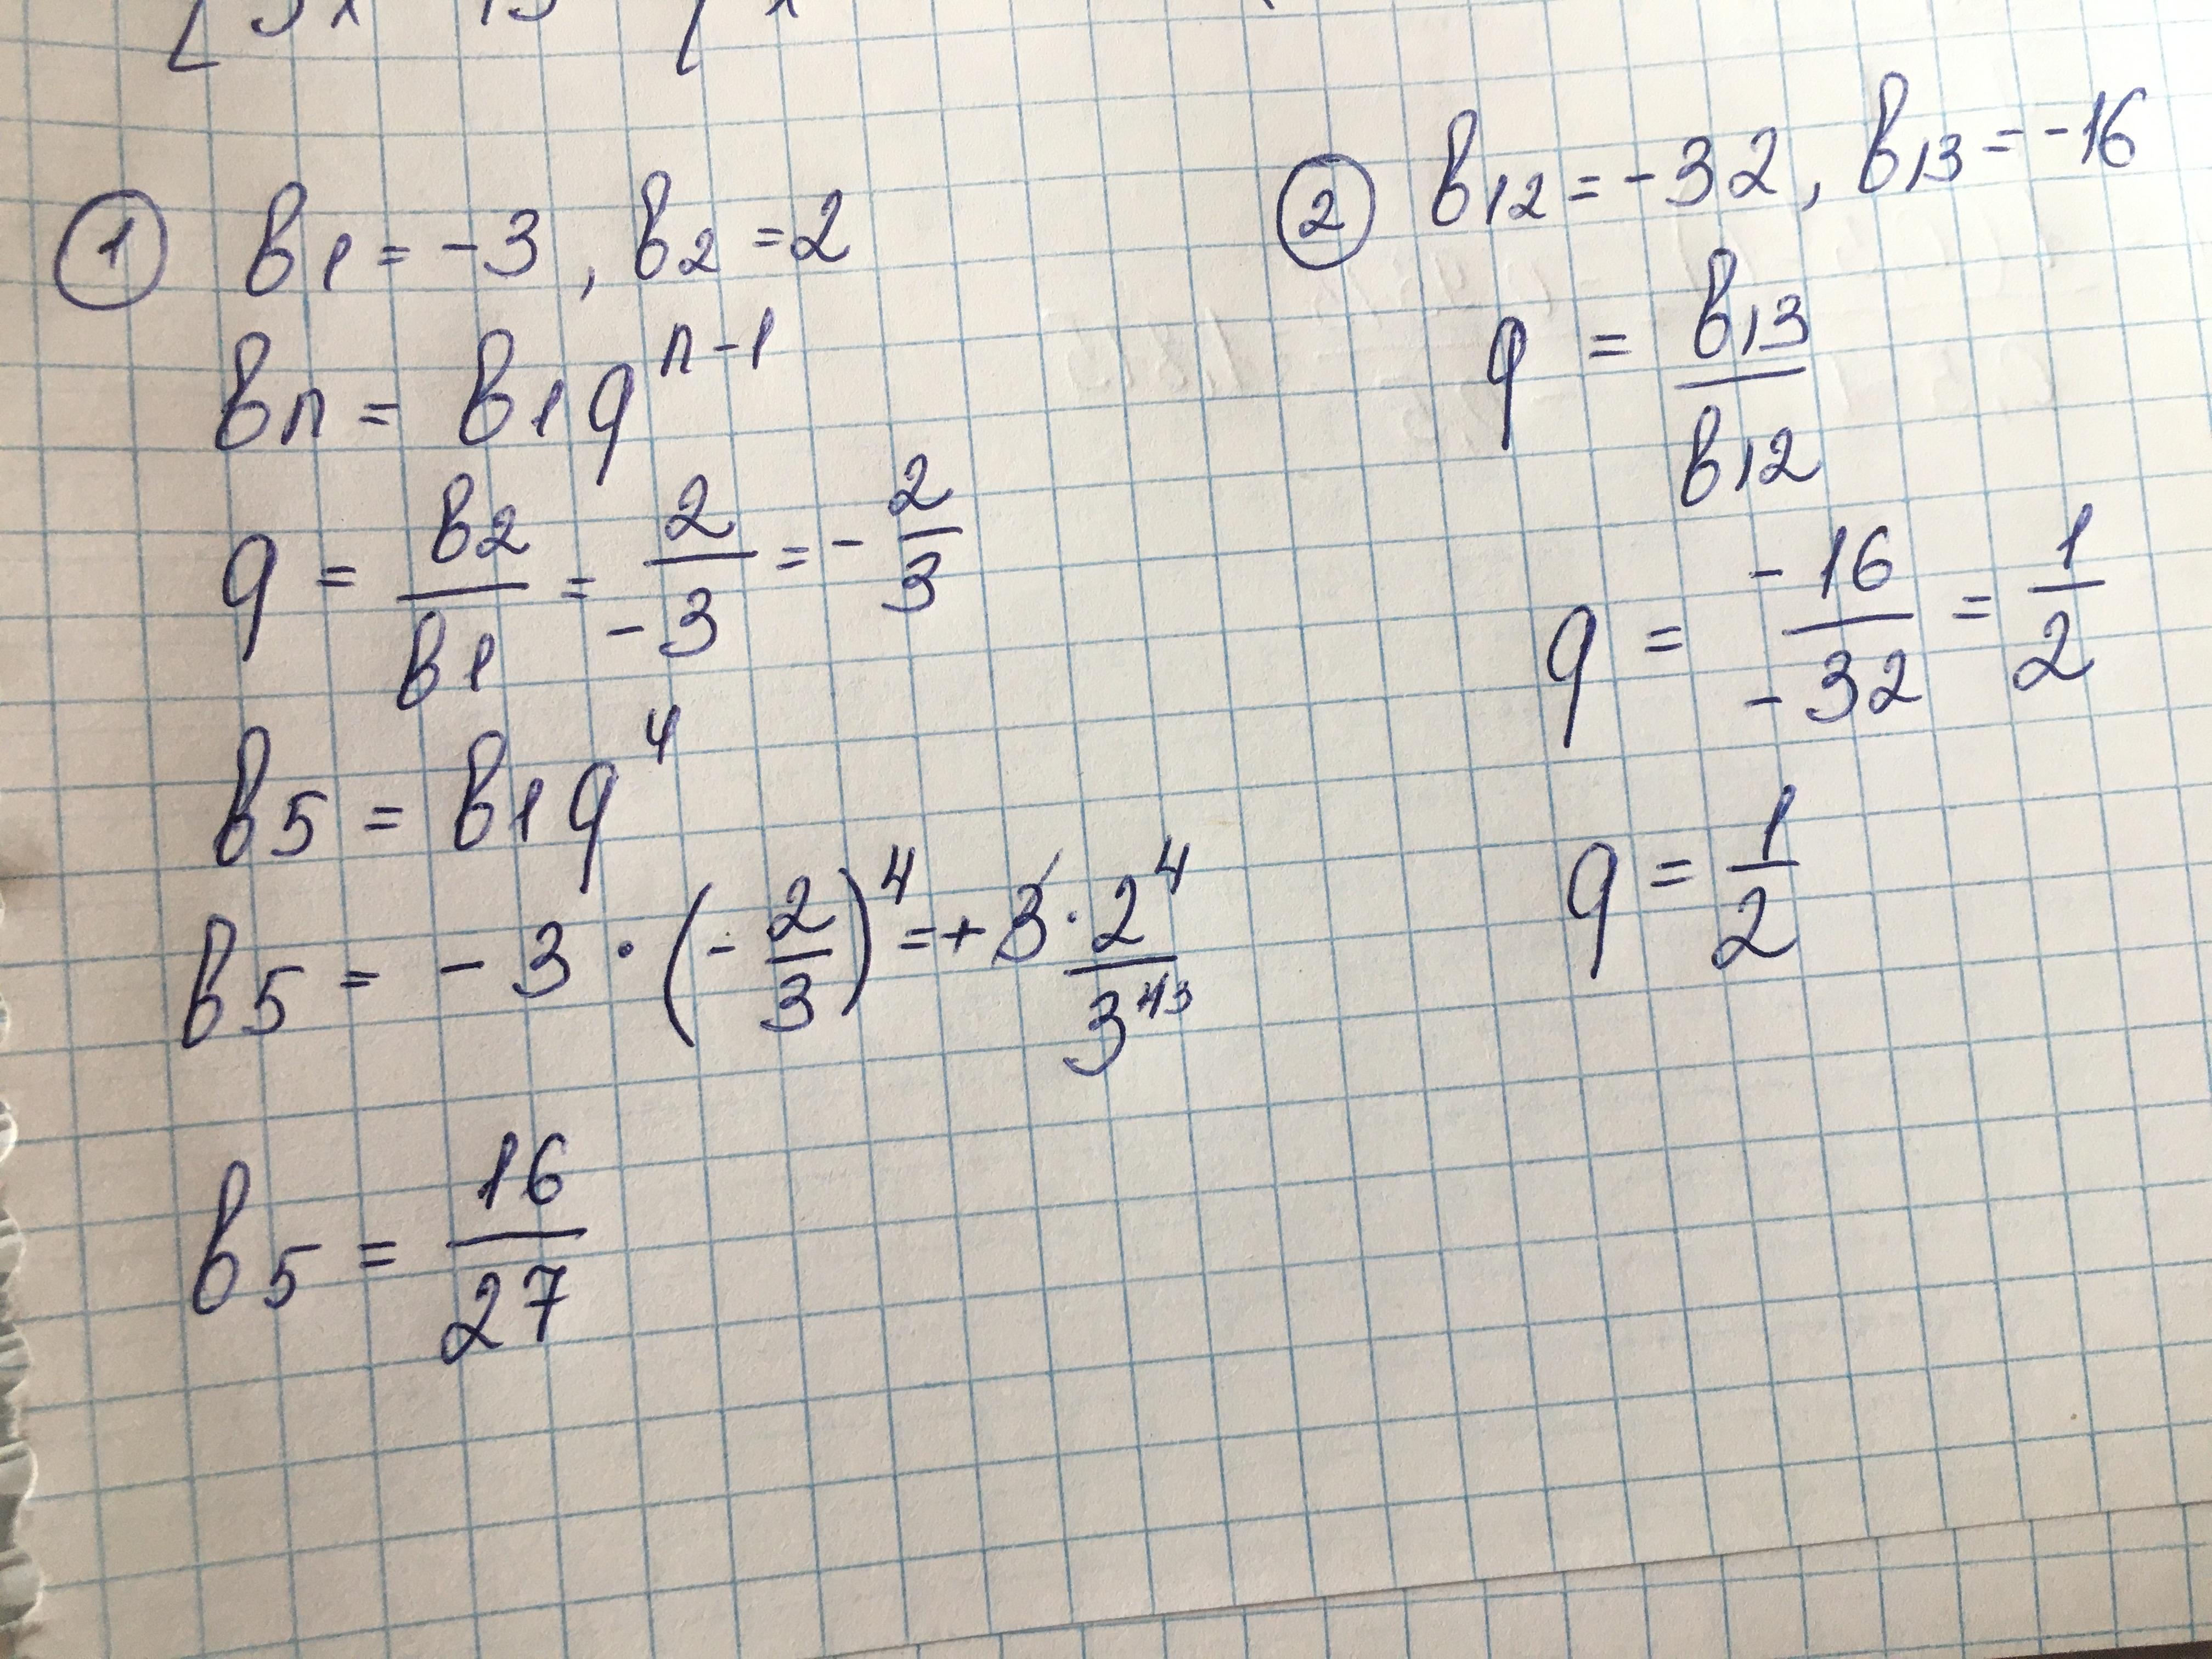 ① b₁ = -3, b₂ = 2
bn = b₁q^(n-1)
q = b₂/b₁ = 2/-3 = -2/3
b₅ = b₁q⁴
b₅ = -3 · (-2/3)⁴ = +3 · 2⁴/3⁴³
b₅ = 16/27
② b₁₂ = -32, b₁₃ = -16
q = b₁₃/b₁₂
q = -16/-32 = 1/2
q = 1/2